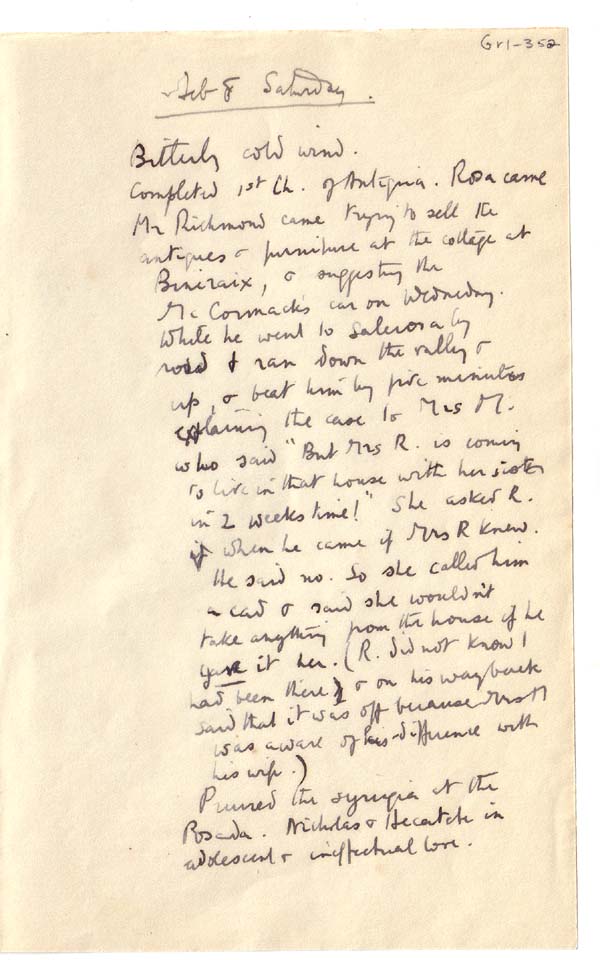 Gr1-352
Feb 8 Saturday.
Bitterly cold wind.
Completed 1st Ch. of Antigua. Rosa came
Mr Richmond came trying to sell the
antiques & furniture at the cottage at
Biniraix, & suggesting the
McCormack's car on Wednesday.
While he went to Salerosa by
road I ran down the valley &
up, & beat him by five minutes
explaining the case to Mrs M.
who said "But Mrs R. is coming
to live in that house with her sister
in 2 weeks time!" She asked R.
if when he came if Mrs R knew.
He said no. So she called him
a cad & said she wouldn't
take anything from the house if he
gave it her. (R. did not know I
had been there) & on his way back
said that it was off because Mrs M
was aware of his difference with
his wife.)
Pruned the syringia at the
Posada. Nicholas & Hecatebe in
adolescent & ineffectual love.